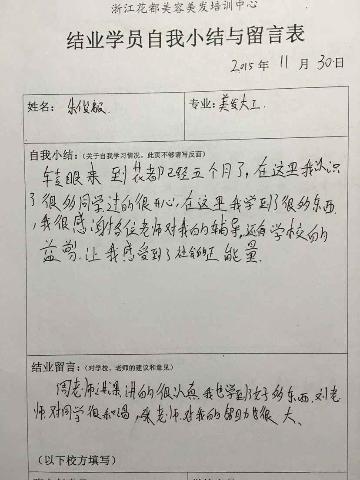 浙江花都美容美发培训中心
结业学员自我小结与留言表
2015 年 11 月 30日
姓名: 朱俊敏 专业: 美发大工
自我小结:(关于自我学习情况，此页不够请写反面)
转眼来到花都已经五个月了，在这里我认识
了很多同学过的很开心，在这里我学到了很多东西
，我很感谢各位老师对我的辅导，还有学校的
益剪.让我感受到了社会的正能量.
结业留言:(对学校、老师的建议和意见)
周老师讲课讲的很认真，我也学到了好多东西.刘老
师对同学很和谒，老师.对我的帮助也很大.
(以下校方填写)